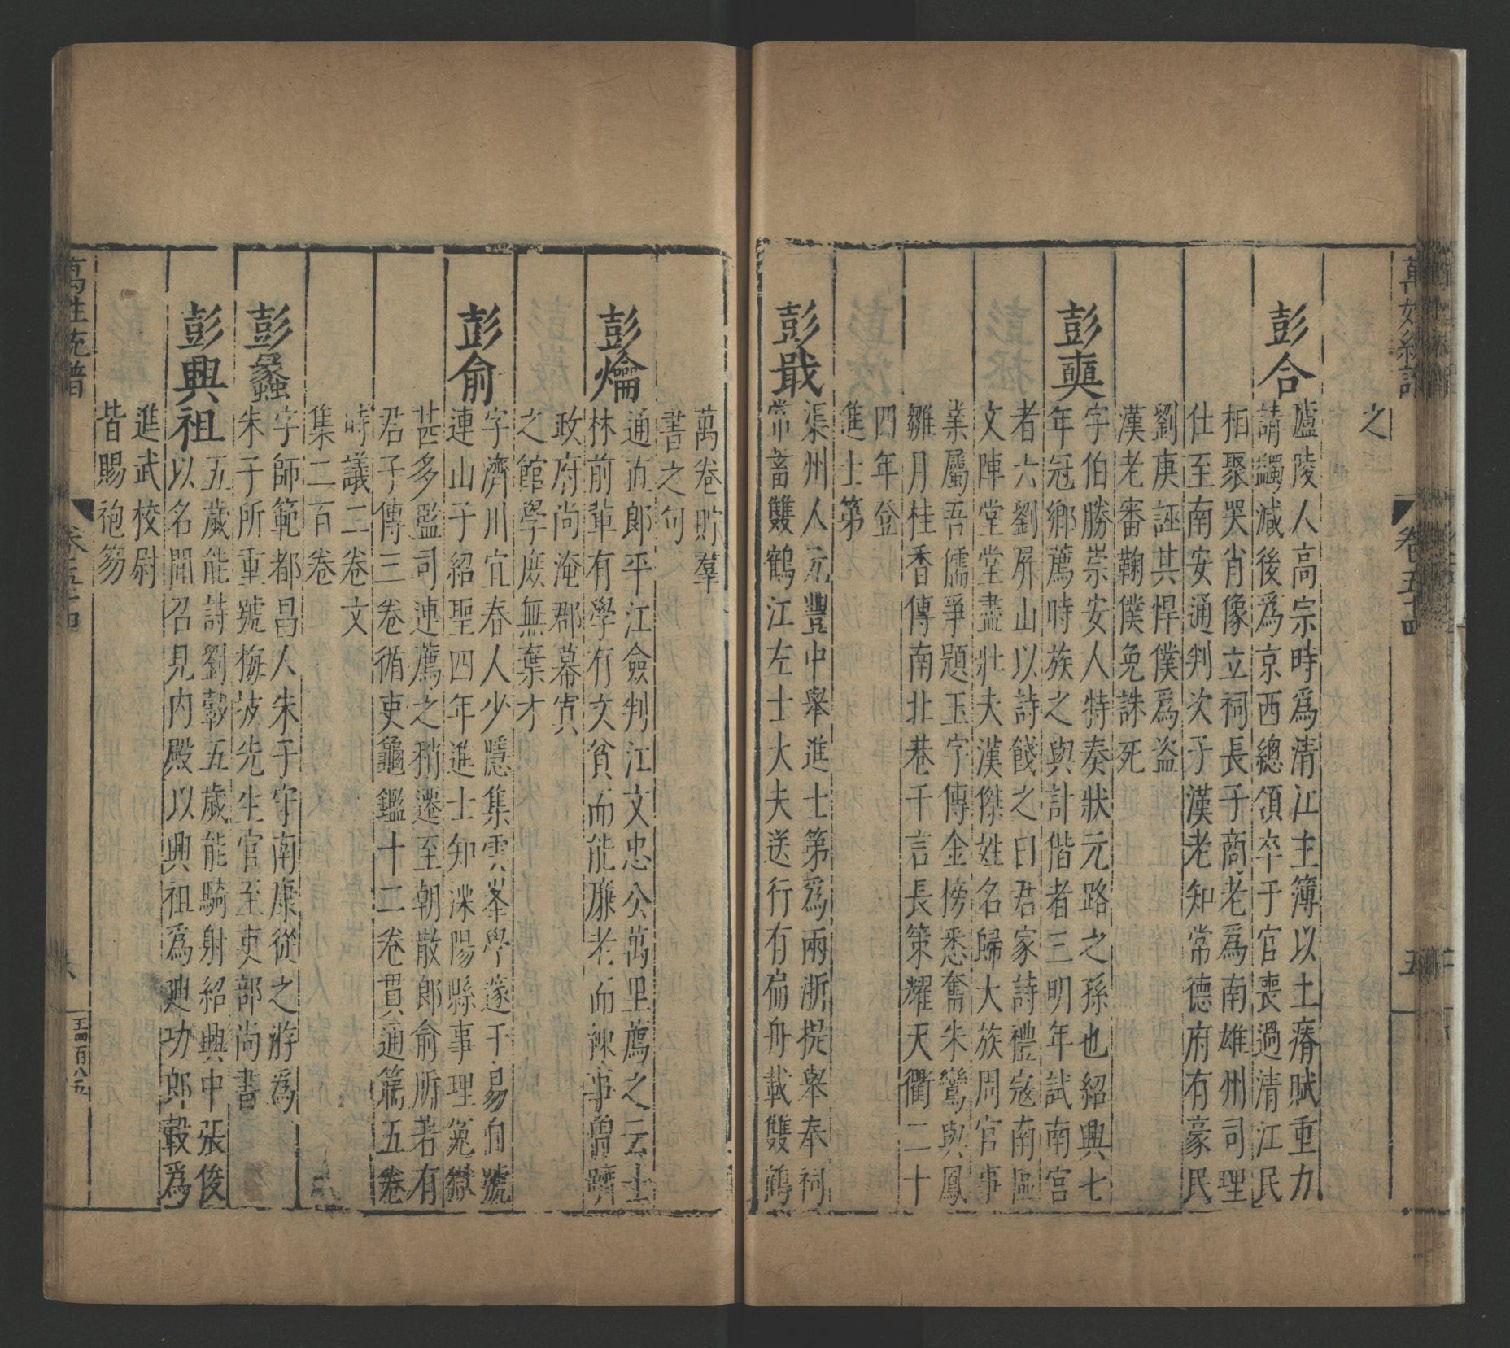 萬姓統譜
卷五十四
五
之
彭合
廬陵人高宗時爲清江主簿以土瘠賦重力
請蠲減後爲京西總領卒于官喪過清江民
相聚哭肖像立祠長子商老爲南雄州司理
仕至南安通判次子漢老知常德府有豪民
劉庚誣其悍僕爲盜
漢老審鞠僕免誅死
彭奭
字伯勝崇安人特奏狀元路之孫也紹興七
年冠鄉薦時族之與計偕者三明年試南宮
者六劉屏山以詩餞之曰君家詩禮冦南區
文陣堂堂盡壯夫漢傑姓名歸大族周官事
業屬吾儒爭題玉字傳金牓悉奮朱鸞與鳳
雛月桂香傳南北巷千言長策耀天衢二十
四年登
進士第
彭戢
渠州人元豐中舉進士第爲兩浙提舉奉祠
常畜雙鶴江左士大夫送行有扁舟載雙鶴
萬卷貯羣
書之句
彭爚
通直郎平江僉判江文忠公萬里薦之云士
林前軰有學有文貧而能廉老而練事曽躋
政府尚淹郡幕寘
之館學庶無棄才
彭俞
字濟川宜春人少隱集雲峯學邃于易自號
連山子紹聖四年進士知溧陽縣事理冤獄
甚多監司連薦之稍遷至朝散郎俞所若有
君子傳三卷循吏龜鑑十二卷貫通篇五卷
時議二卷文
集二百卷
彭蠡
字師範都昌人朱子守南康從之游爲
朱子所重號梅坡先生官至吏部尚書
彭興祖
五歲能詩劉轂五歲能騎射紹興中張俊
以名聞召見内殿以興祖爲廸功郎轂爲
進武校尉
皆賜袍笏
萬姓統譜
卷五十四